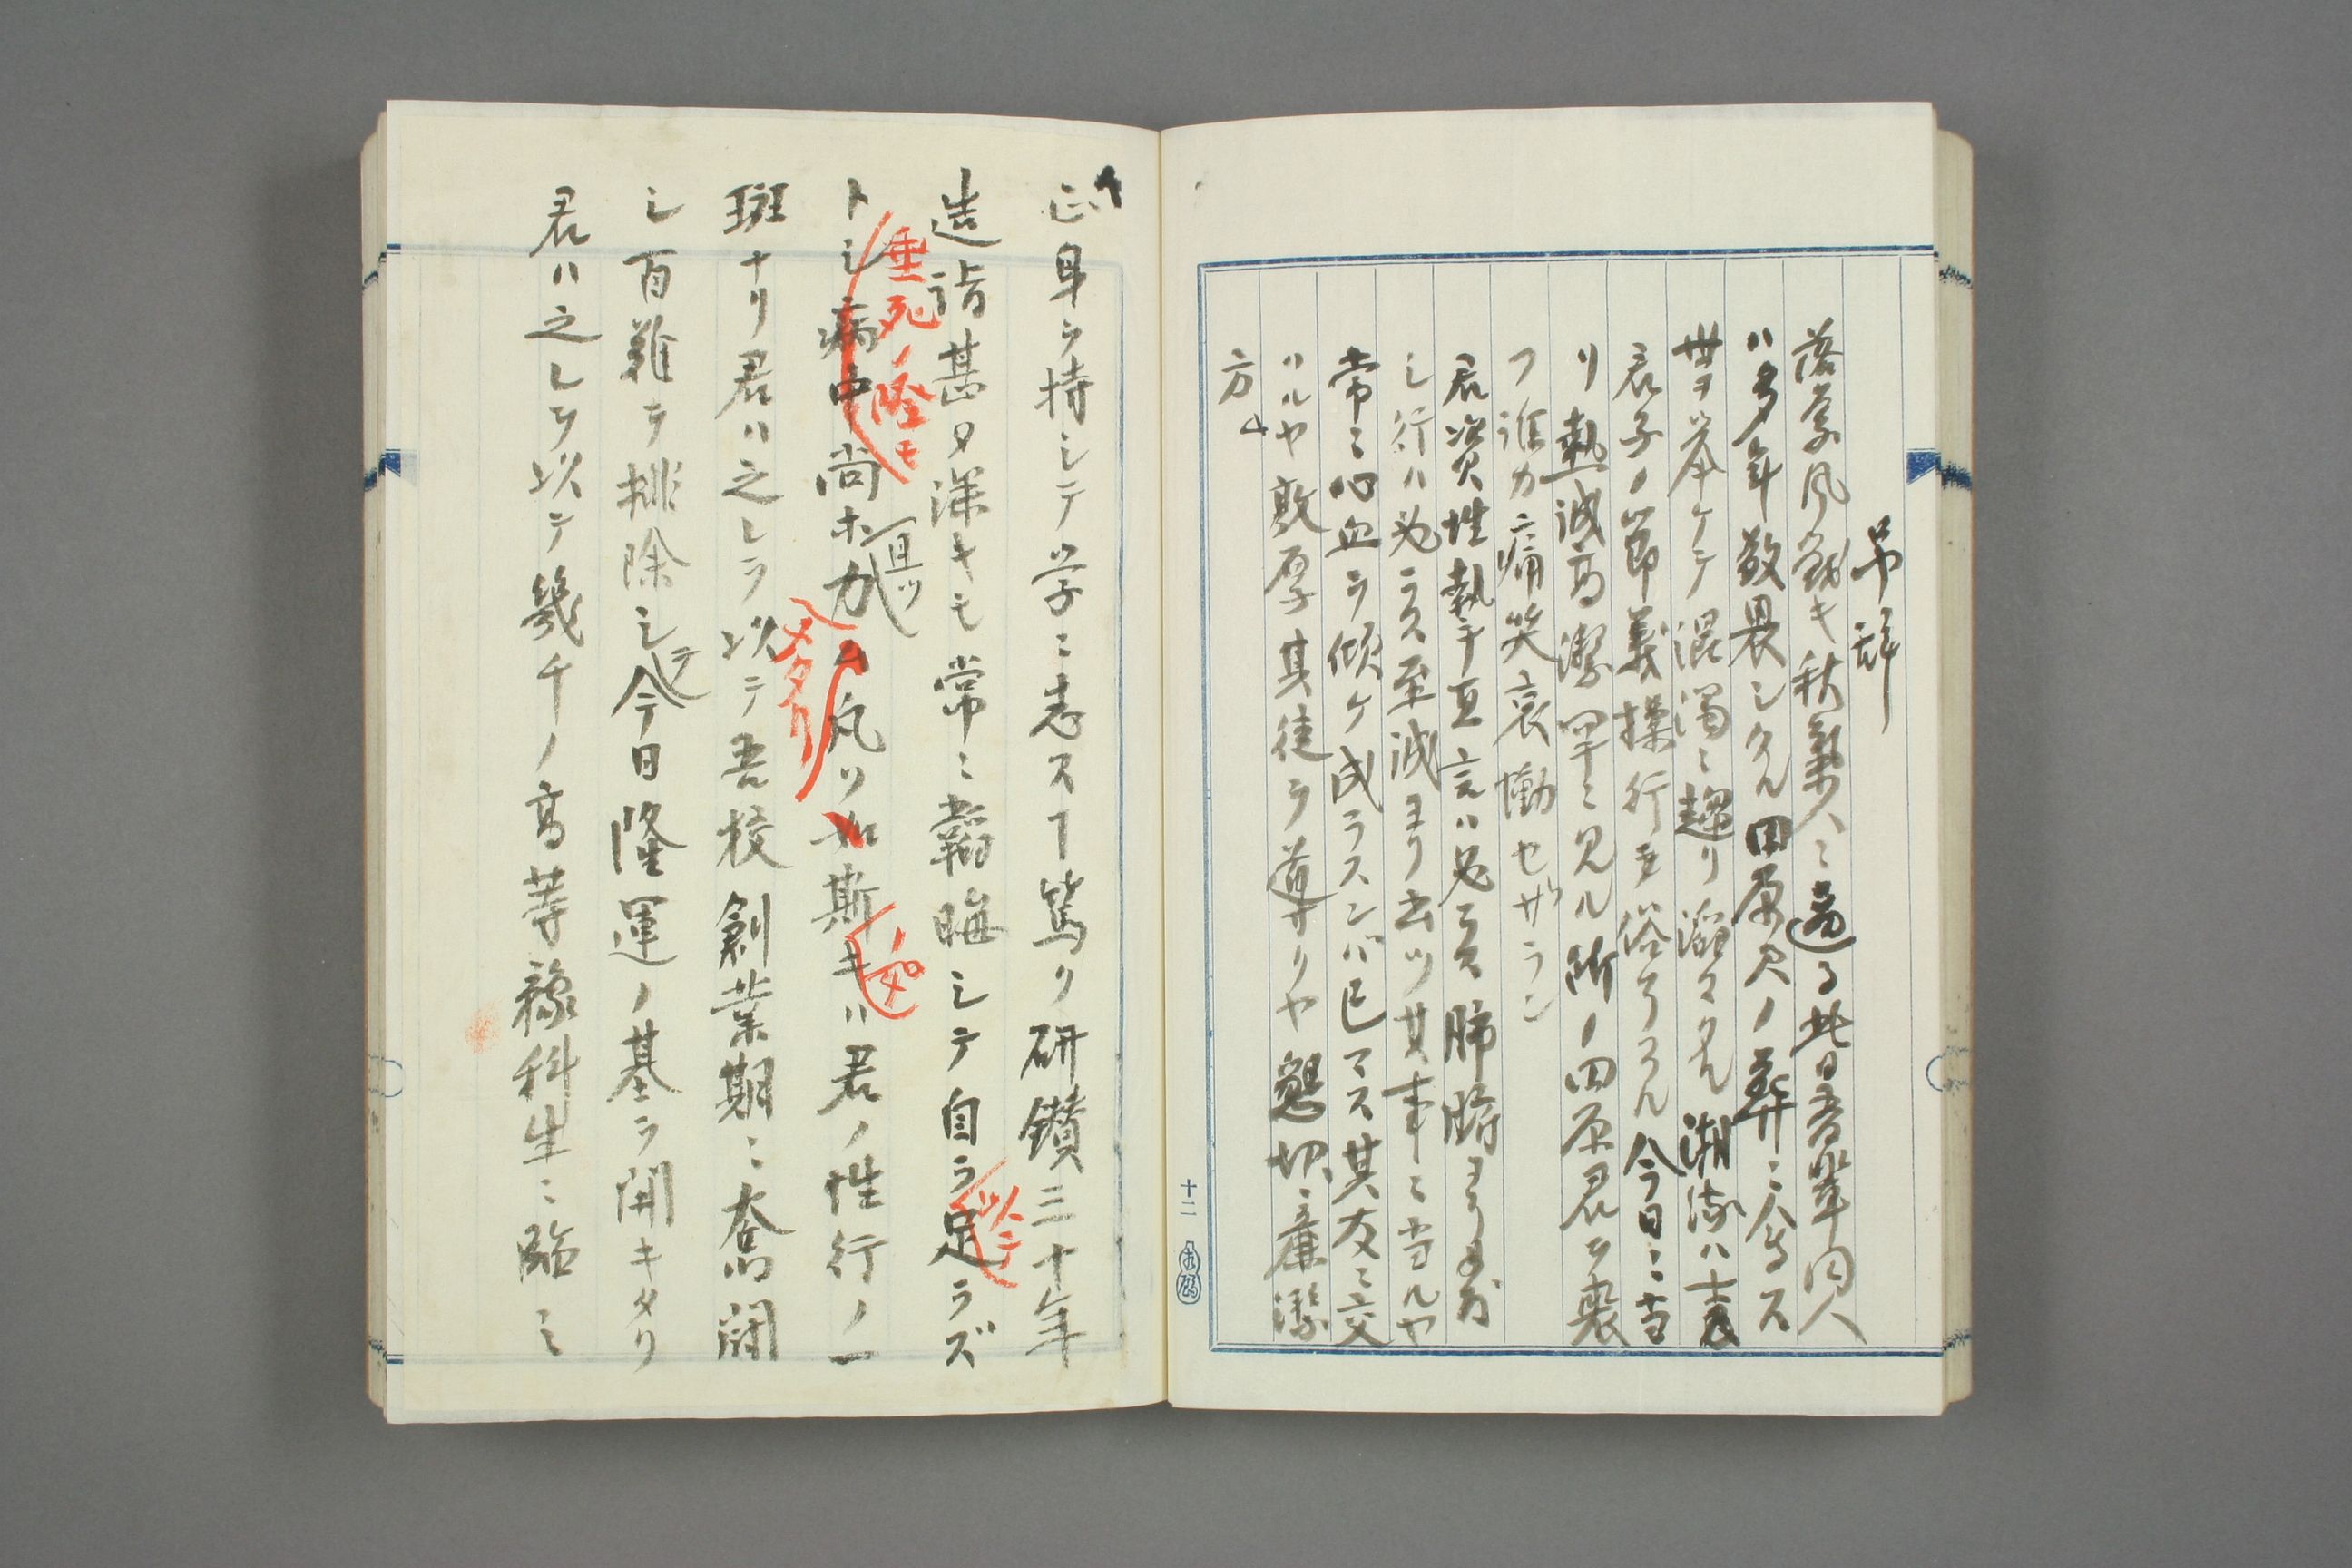 弔辞
落葉風戦キ秋氣人ニ逼る此日吾輩同人
ハ多年敬畏シタル田原君ノ葬ニ会ス
世ヲ挙ケテ混濁ニ趨リ滔々タル潮流ハ士
君子ノ節義操行ヲ俗ナラシム今日ニ当
リ熱誠高潔罕ニ見ル所ノ田原君ヲ喪
フ誰カ痛哭哀慟セザラン
君資性熱誠直言ハ必ス肺腑ヨリ出
シ行ハ必ラス至誠ヨリ出ツ其事ニ当ルヤ
常ニ心血ヲ傾ケ成ラスンバ已マス其友ニ交
ハルヤ敦厚其徒ヲ導クヤ懇切ニ廉潔
方
正身ヲ持シテ学ニ志スヿ篤ク研鑚三十年
造詣甚タ深キモ常ニ韜晦シテ自ラ足ラズ
以テ
トシ病中尚ホ且ツ力ム凡ソ如斯キハ君ノ性行ノ一
垂死ノ際モ
メタリ
如
斑ナリ君ハ之レヲ以テ吾校創業期ニ奮闘
シ百難ヲ排除シテ今日隆運ノ基ヲ開キタリ
君ハ之レヲ以テ幾千ノ高等豫科生ニ臨ミ
十二